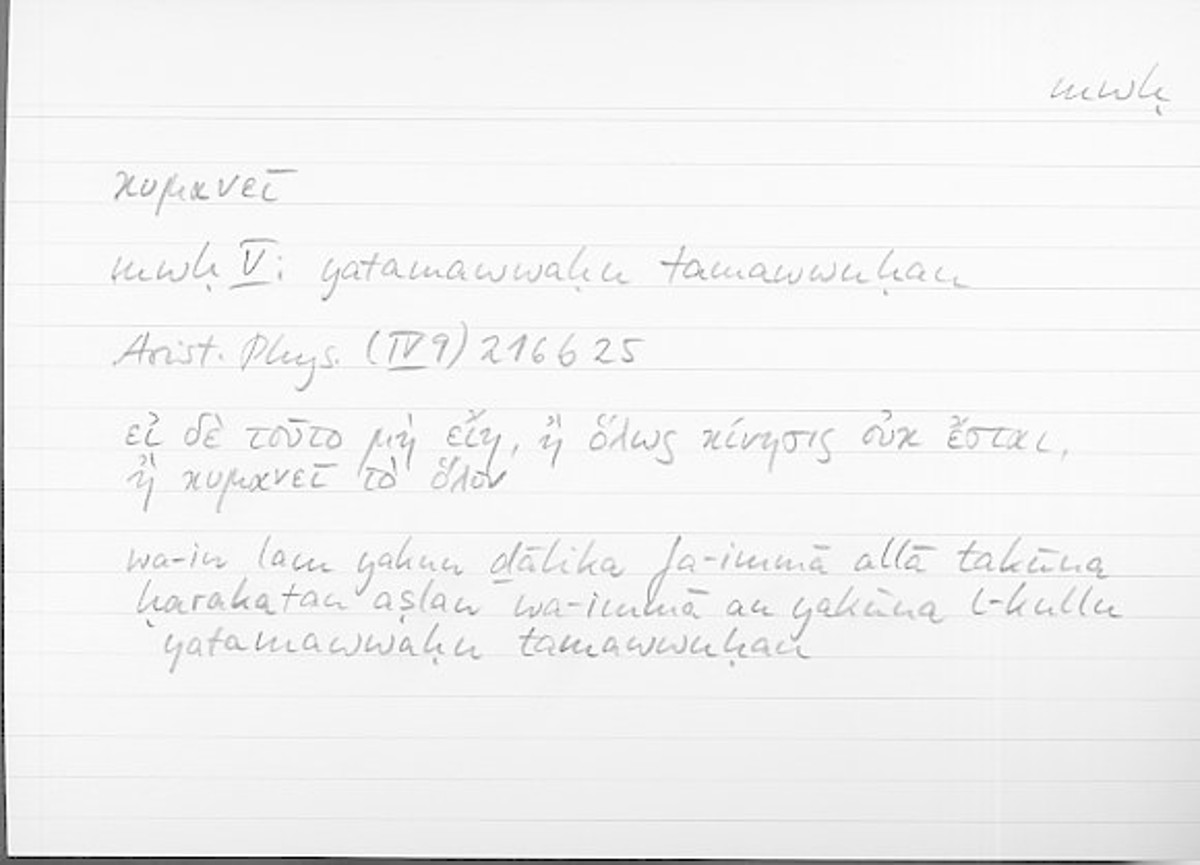 mwḥ
κυμανεῖ
mwḥ V: yatamawwaḥu tamawwuḥan
Arist. Phys. (IV 9) 216 b 25
εἰ δὲ τοῦτο μὴ εἴη, ἢ ὅλως κίνησις οὐκ ἔσται,
ἢ κυμανεῖ τὸ ὅλον
wa-in lam yakun ḏālika fa-immā allā takūna
ḥarakatan aṣlan wa-immā an yakūna l-kullu
yatamawwaḥu tamawwuḥan